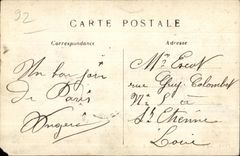 92
CARTE POSTALE
Correspondance
Adresse
Un bon joir
de Paris
Angers
Mr Escot
rue Guy Colombet
No 8 a
St Etienne
Loire